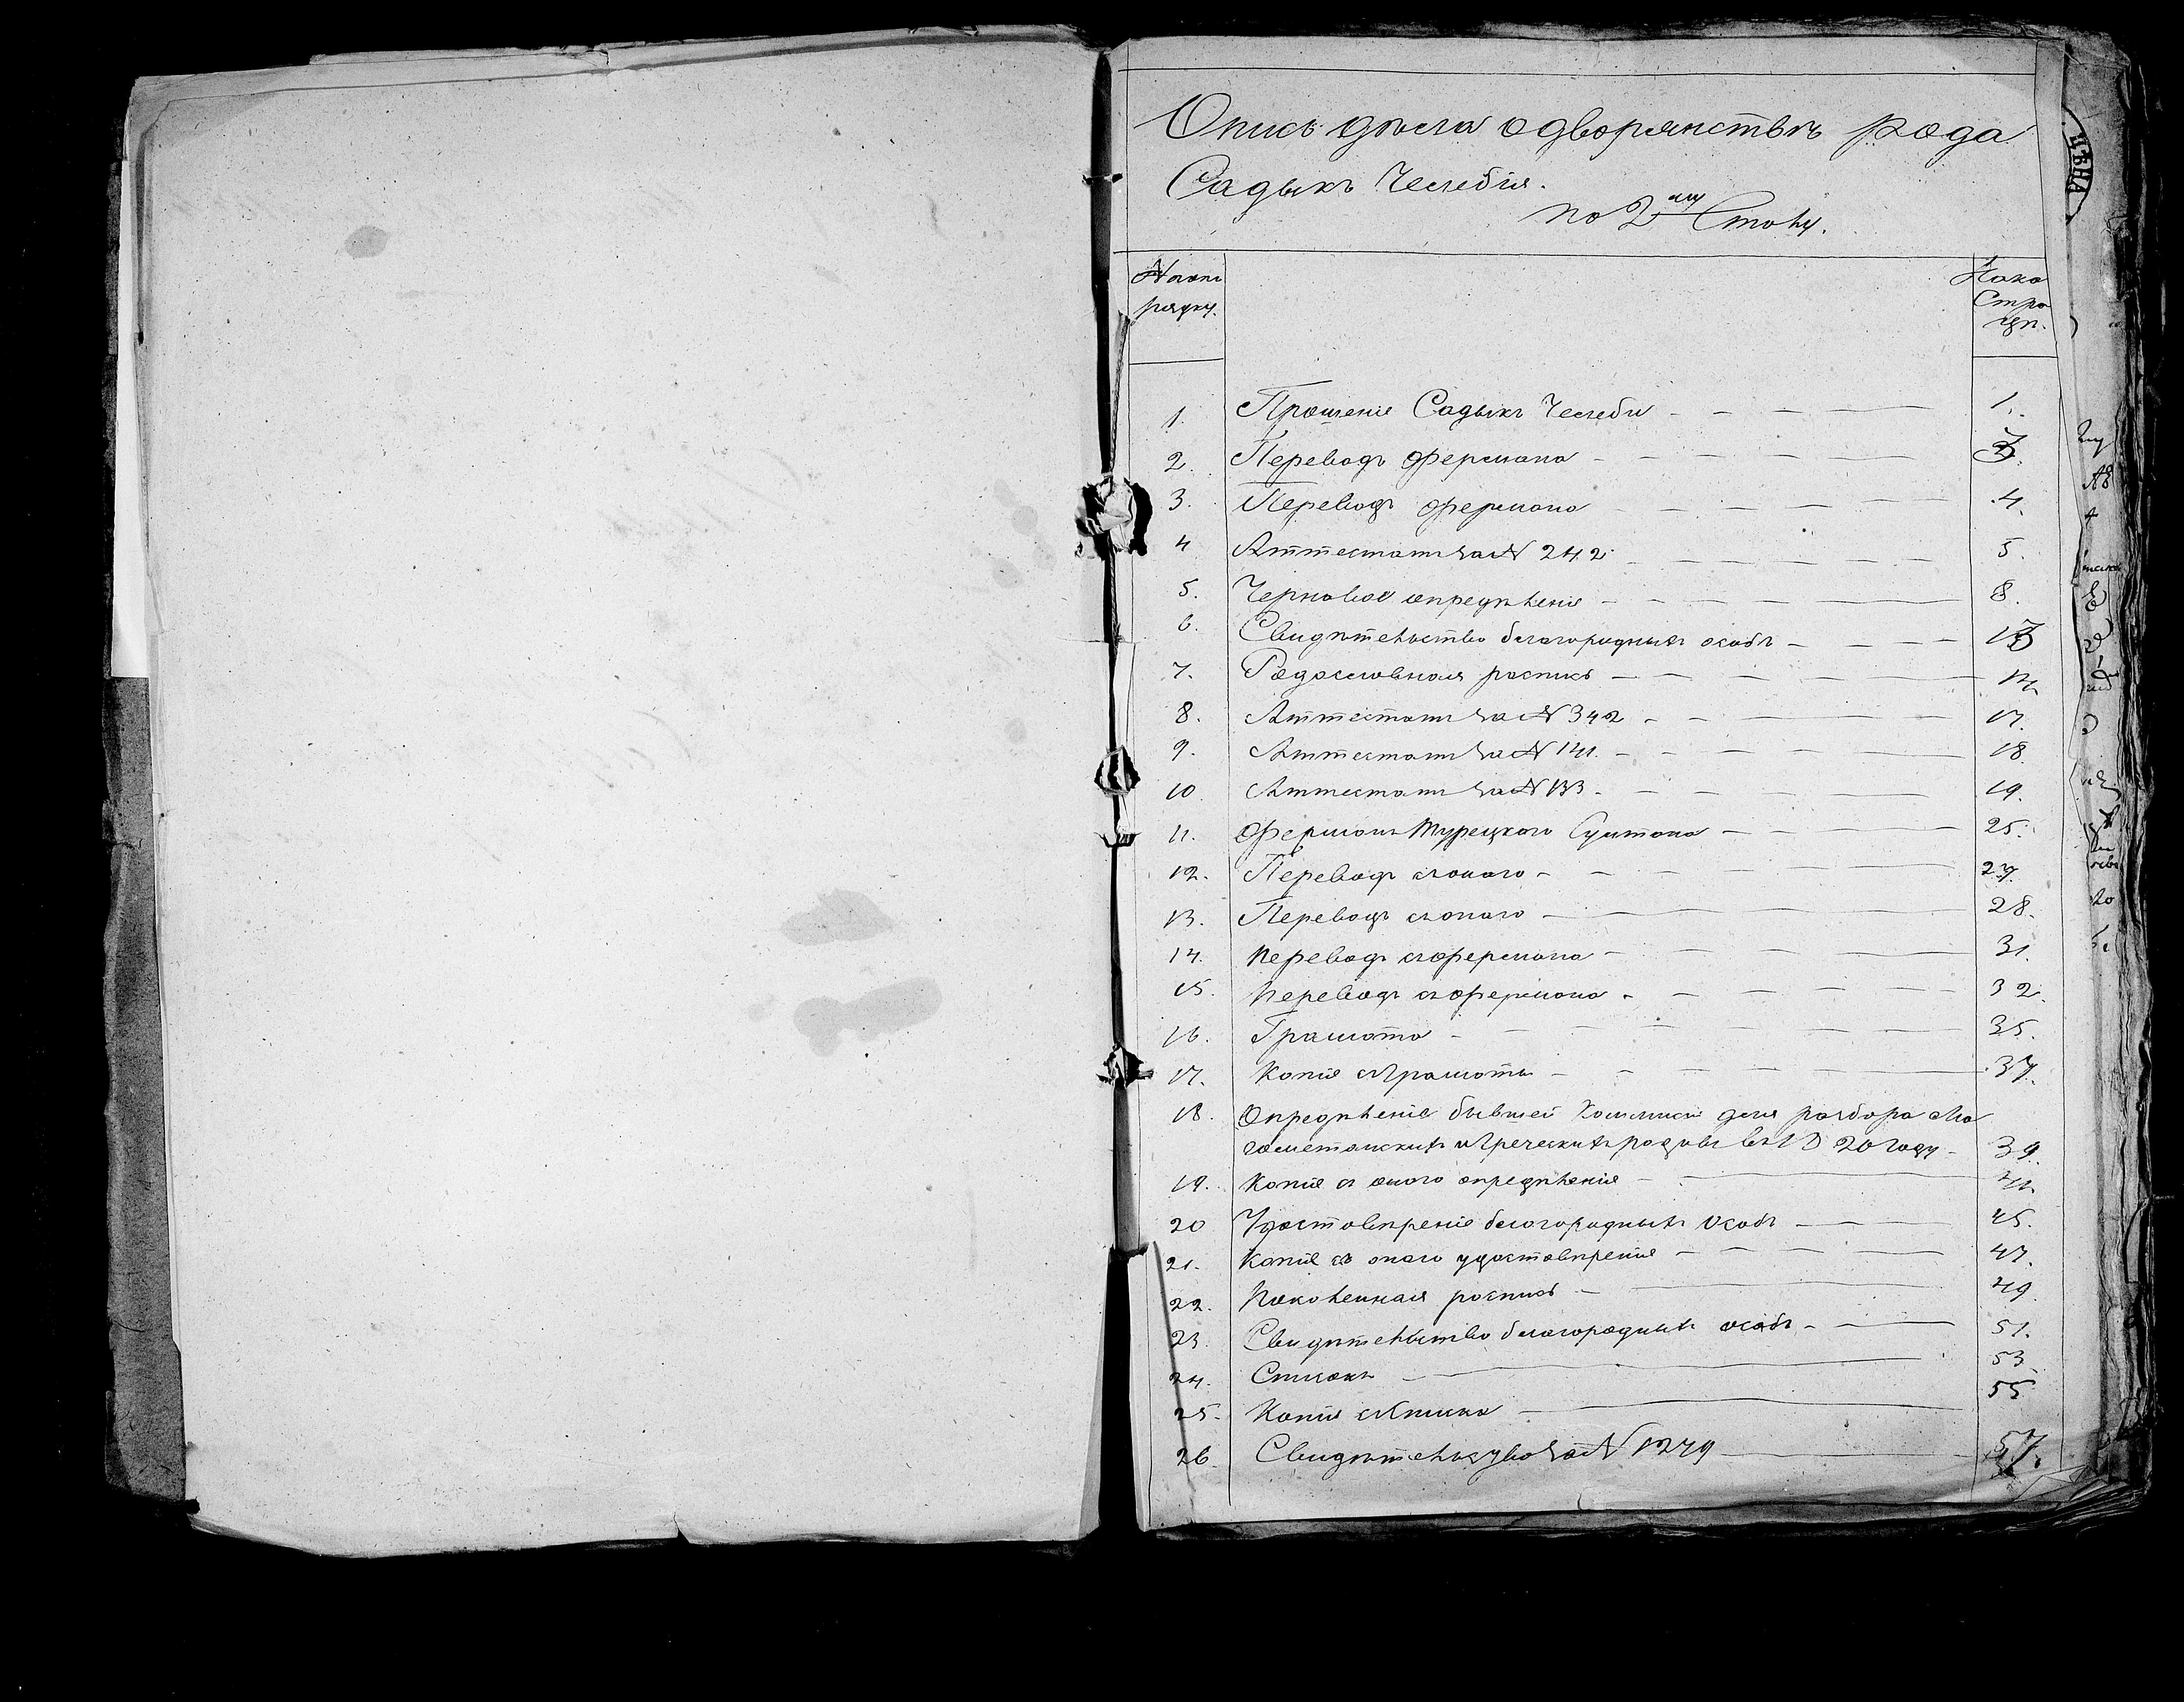 Опись дѣла о дворянствѣ рода
Садыкъ Челебія.
по 2му Столу.
№ по по
рядку.
На ко
Стра
цѣ.
1. Прошеніе Садыкъ Челеби 1.
2. Переводъ фермана 3.
3. Переводъ фермана 4.
4 Аттестатъ за № 242 5.
5. Черновое опредѣленіе 8.
6. Свидѣтельство благородныхъ особъ 13
7. Родословная роспись 14
8. Аттестатъ за № 342 17.
9. Аттестатъ за № 141. 18.
10 Аттестатъ за № 133 19.
11. Ферманъ Турецкого Султана 25.
12. Переводъ съ онаго 27.
13. Переводъ съ онаго 28.
14. Переводъ съ фермана 31.
15. Переводъ съ фермана 32.
16. Грамота 35.
17. Копія съ Грамоты 37.
18. Опредѣленіе бывшей Комиссіи для разбора Ма
гометанскихъ и Греческихъ родовъ въ 1820 году 39.
19. Копія съ оного опредѣленія 41
20 Удостовѣреніе благородныхъ особъ 45.
21. Копія съ онаго удостовѣренія 47.
22. Поколенная роспись 49.
23. Свидѣтельство благородныхъ особъ 51.
24. Списокъ 53.
25. Копія съ Списка 55
26. Свидѣтельство за № 1279 57.
ЦѢНА